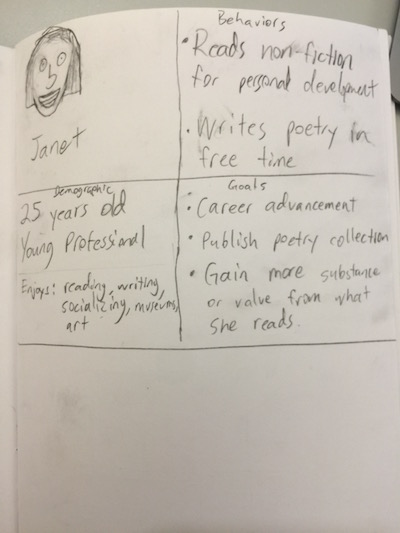 Janet
Behaviors
• Reads non-fiction
for personal development
• Writes poetry in
free time
Demographic
25 years old
Young Professional
Enjoys: reading, writing,
socializing, museums,
art
Goals
• Career advancement
• Publish poetry collection
• Gain more substance
or value from what
she reads.